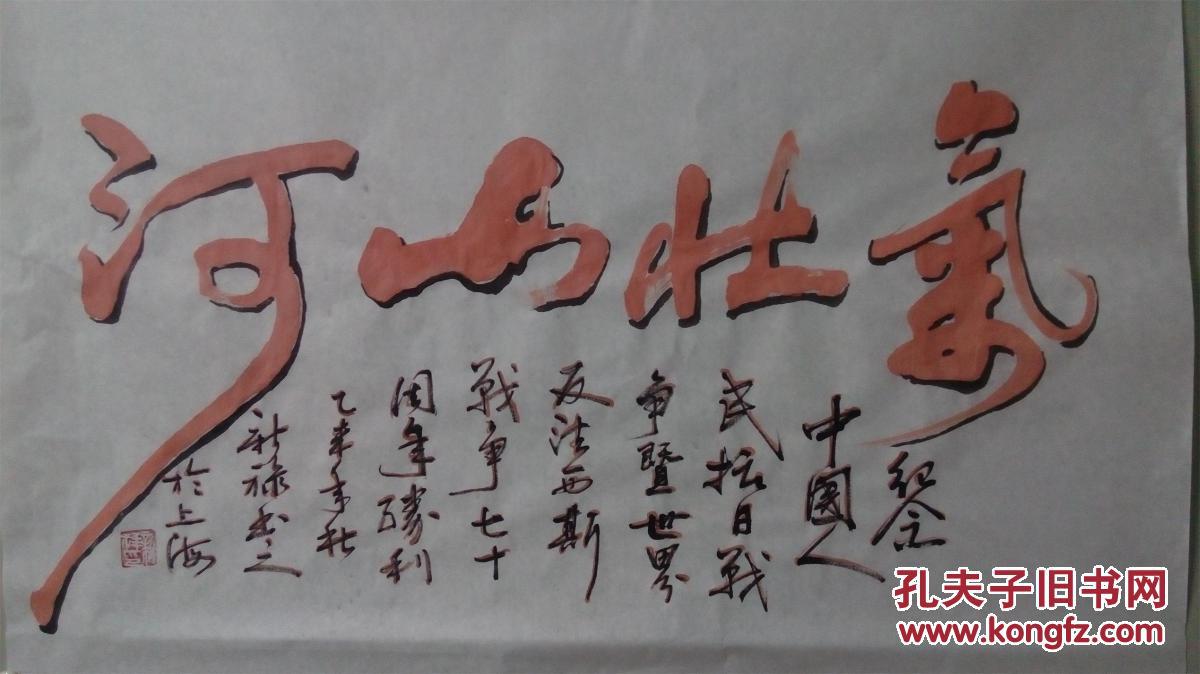 氣壮山河
紀念
中國人
民抗日戰
争暨世界
反法西斯
戰争七十
周年勝利
乙未秋
新禄书之
於上海
孔夫子旧书网
www.kongfz.com